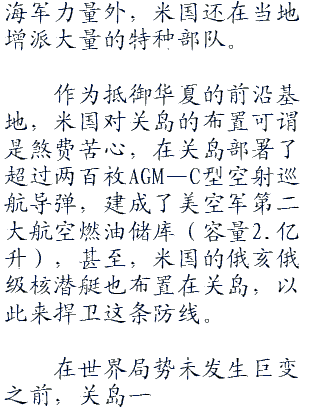 海军力量外，米国还在当地
增派大量的特种部队。
作为抵御华夏的前沿基
地，米国对关岛的布置可谓
是煞费苦心，在关岛部署了
超过两百枚AGM—C型空射巡
航导弹，建成了美空军第二
大航空燃油储库（容量2.亿
升），甚至，米国的俄亥俄
级核潜艇也布置在关岛，以
此来捍卫这条防线。
在世界局势未发生巨变
之前，关岛一